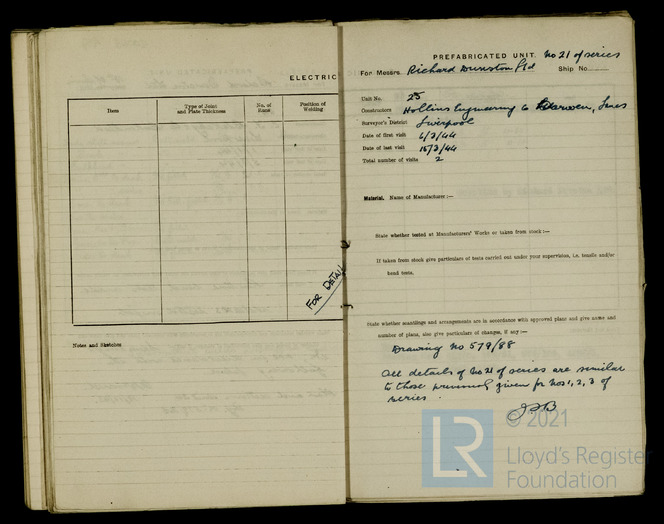 ELECTRIC
Item
Type of Joint
and Plate Thickness
No. of
Runs
Position of
Welding
FOR DETAIL
Notes and Sketches
PREFABRICATED UNIT. No 21 of series
For Messrs. Richard Dunston Ltd Ship No.
Unit No. 25
Constructors Hollins Engineering Co Darwen, Lancs
Surveyor's District Liverpool
Date of first visit 6/3/44
Date of last visit 15/3/44
Total number of visits 2
Material. Name of Manufacturer:—
State whether tested at Manufacturers' Works or taken from stock:—
If taken from stock give particulars of tests carried out under your supervision, i.e. tensile and/or
bend tests.
State whether scantlings and arrangements are in accordance with approved plans and give name and
number of plans, also give particulars of changes, if any:—
Drawing No 579/88
All details of No 21 of series are similar
to those previously given for Nos 1, 2, 3 of
series.
© 2021
LR
Lloyd's Register
Foundation